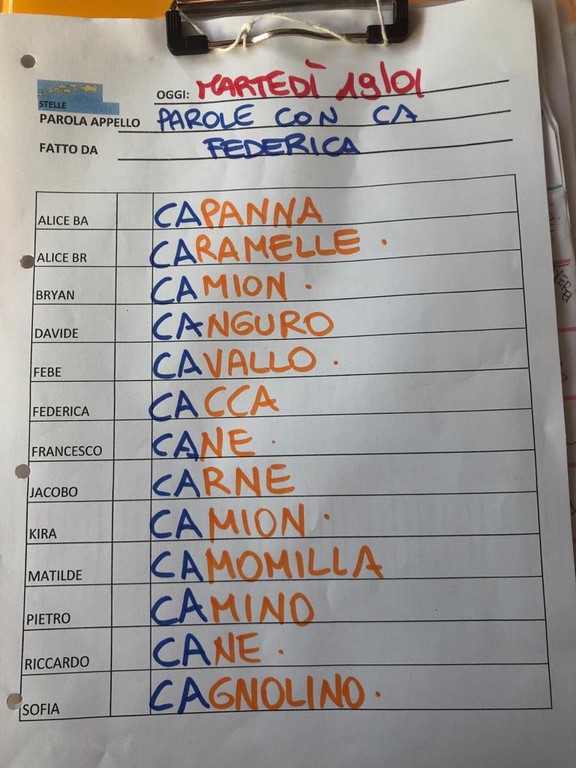 STELLE
OGGI: MARTEDÌ 19/01
PAROLA APPELLO PAROLE CON CA
FATTO DA FEDERICA
ALICE BA CAPANNA
ALICE BR CARAMELLE.
BRYAN CAMION.
DAVIDE CANGURO
FEBE CAVALLO.
FEDERICA CACCA
FRANCESCO CANE.
JACOBO CARNE
KIRA CAMION.
MATILDE CAMOMILLA
PIETRO CAMINO
RICCARDO CANE.
SOFIA CAGNOLINO.